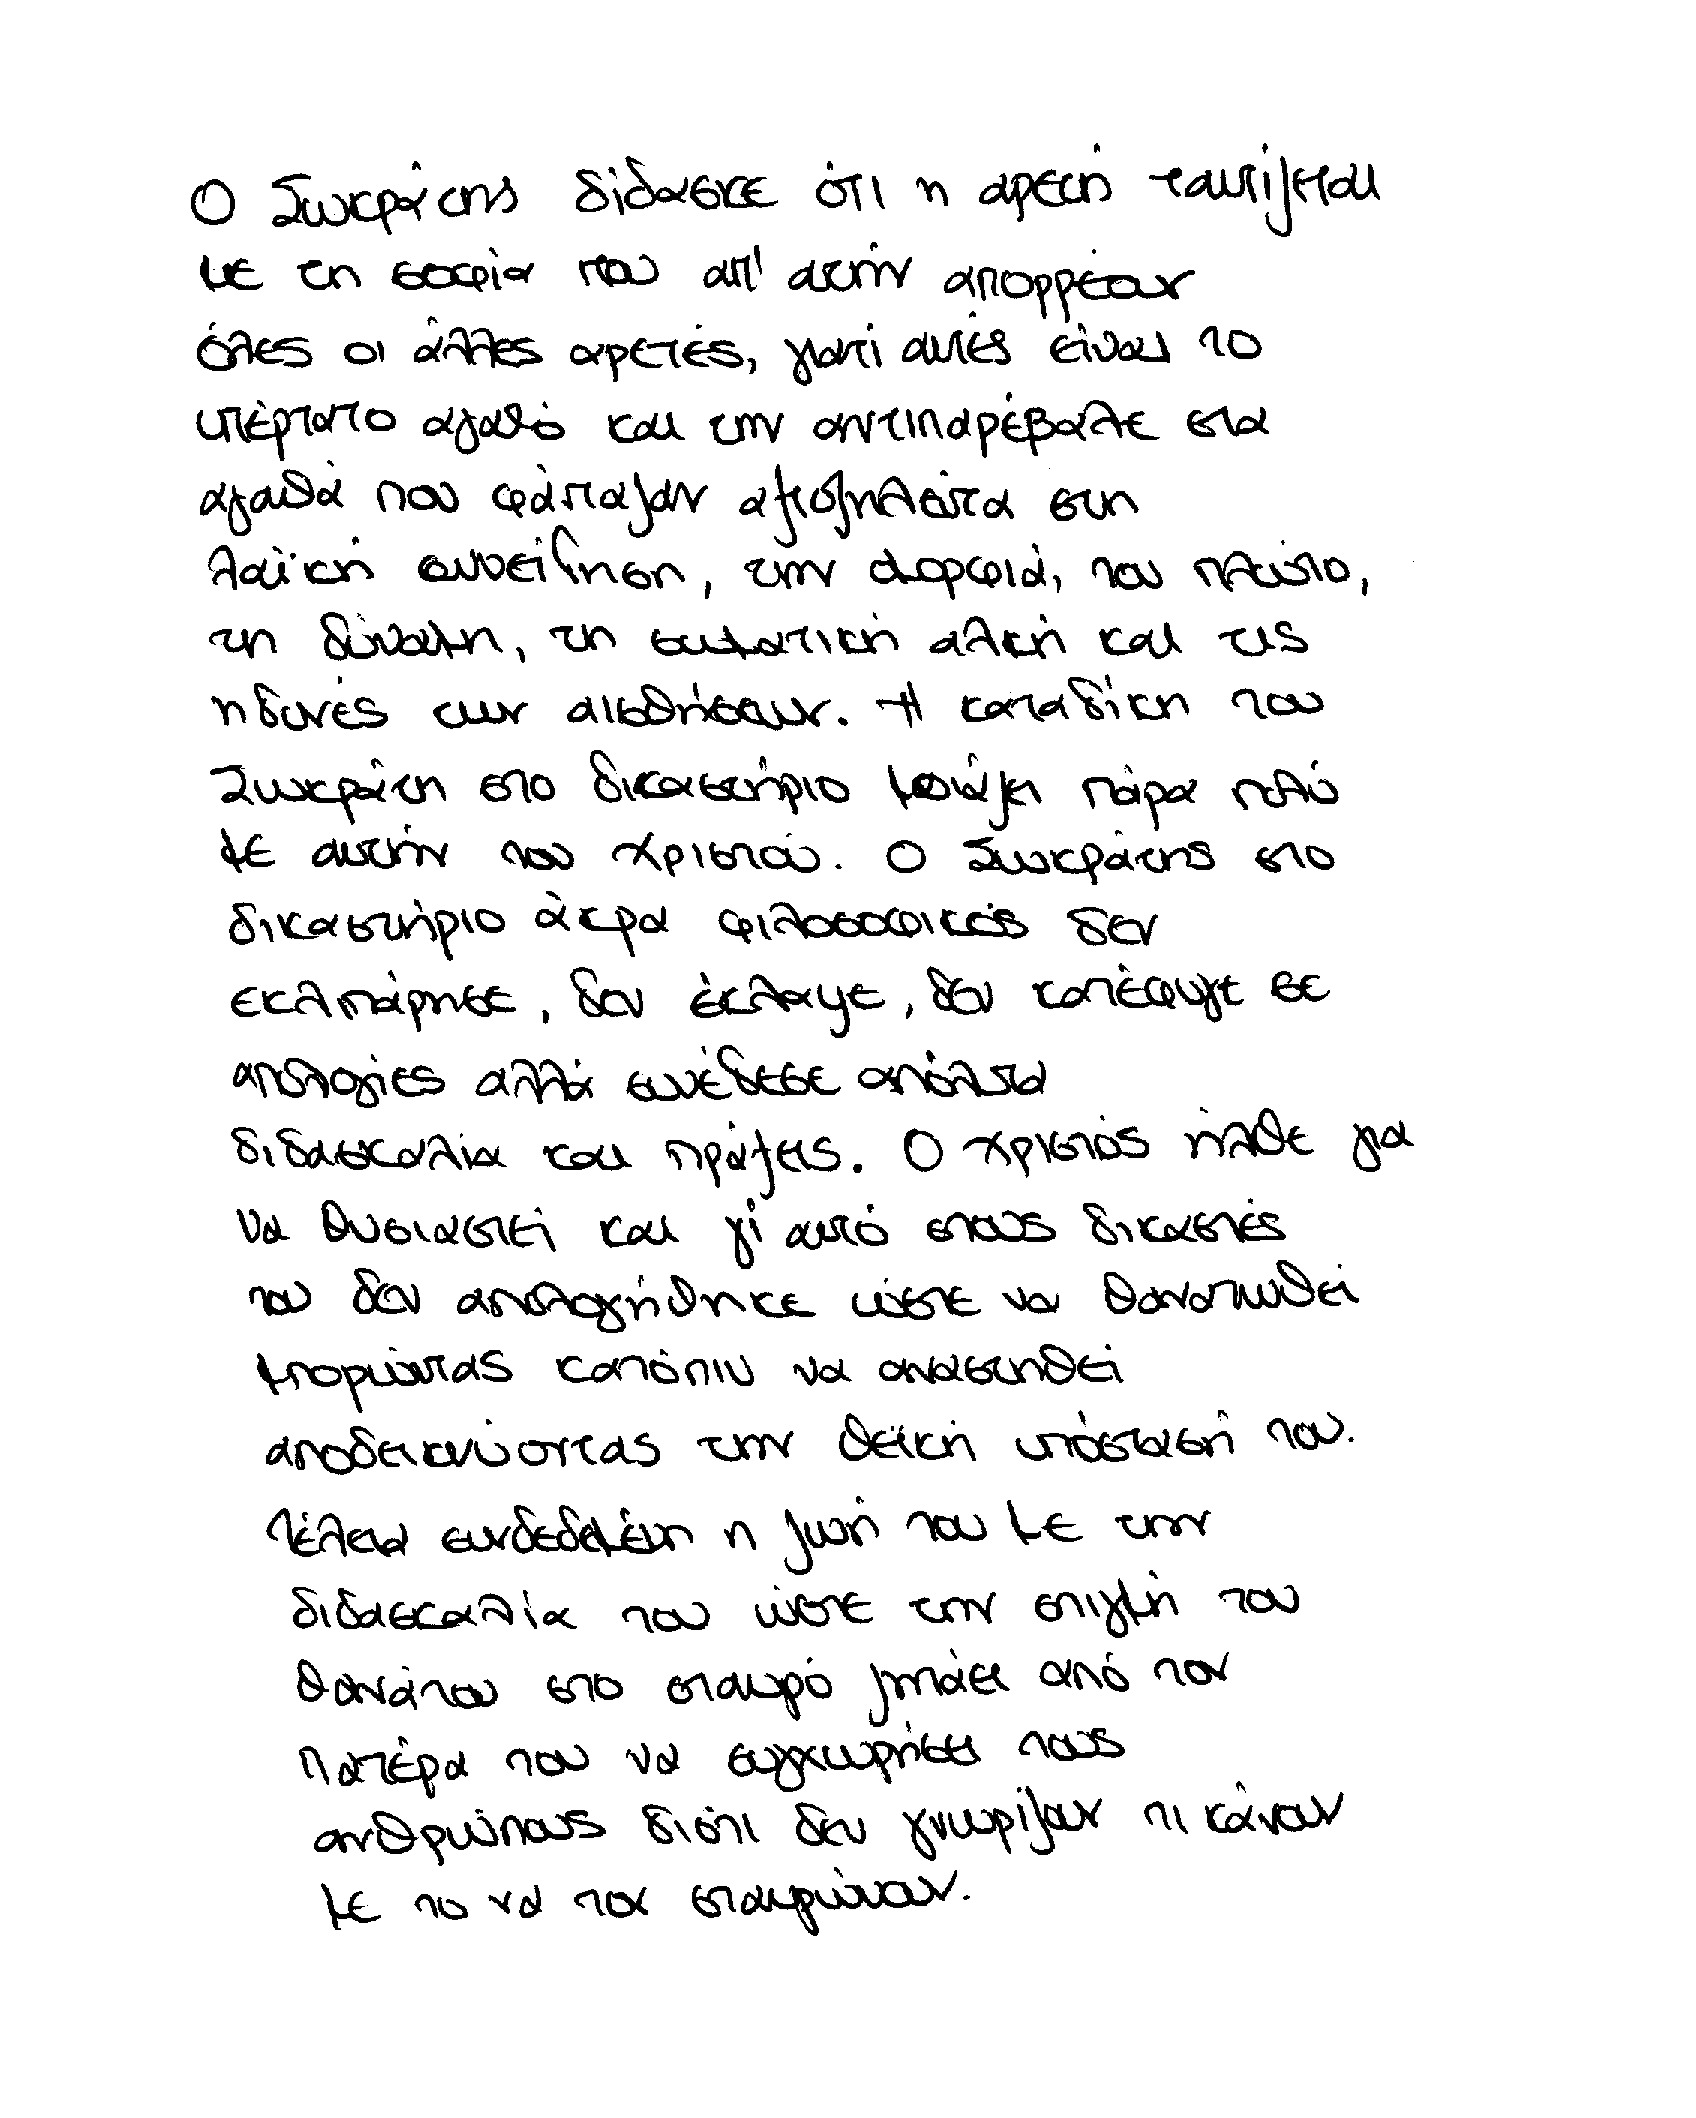 Ο Σωκράτης δίδασκε ότι η αρετή ταυτίζεται
με τη σοφία που απ' αυτήν απορρέουν
όλες οι άλλες αρετές, γιατί αυτές είναι το
υπέρτατο αγαθό και την αντιπαρέβαλε στα
αγαθά που φάνταζαν αξιοζήλευτα στη
λαϊκή συνείδηση, την ομορφιά, τον πλούτο,
τη δύναμη, τη σωματική αλκή και τις
ηδονές των αισθήσεων. Η καταδίκη του
Σωκράτη στο δικαστήριο μοιάζει πάρα πολύ
με αυτήν του Χριστού. Ο Σωκράτης στο
δικαστήριο άκρα φιλοσοφικός δεν
εκλιπάρησε, δεν έκλαψε, δεν κατέφυγε σε
απολογίες αλλά συνέδεσε απόλυτα
διδασκαλία και πράξεις. Ο Χριστός ήλθε για
να θυσιαστεί και γι' αυτό στους δικαστές
του δεν απολογήθηκε ώστε να θανατωθεί
μπορώντας κατόπιν να αναστηθεί
αποδεικνύοντας την θεϊκή υπόστασή του.
Τέλεια συνδεδεμένη η ζωή του με την
διδασκαλία του ώστε την στιγμή του
θανάτου στο σταυρό ζητάει από τον
πατέρα του να συγχωρήσει τους
ανθρώπους διότι δεν γνωρίζαν τι κάνουν
με το να τον σταυρώνουν.